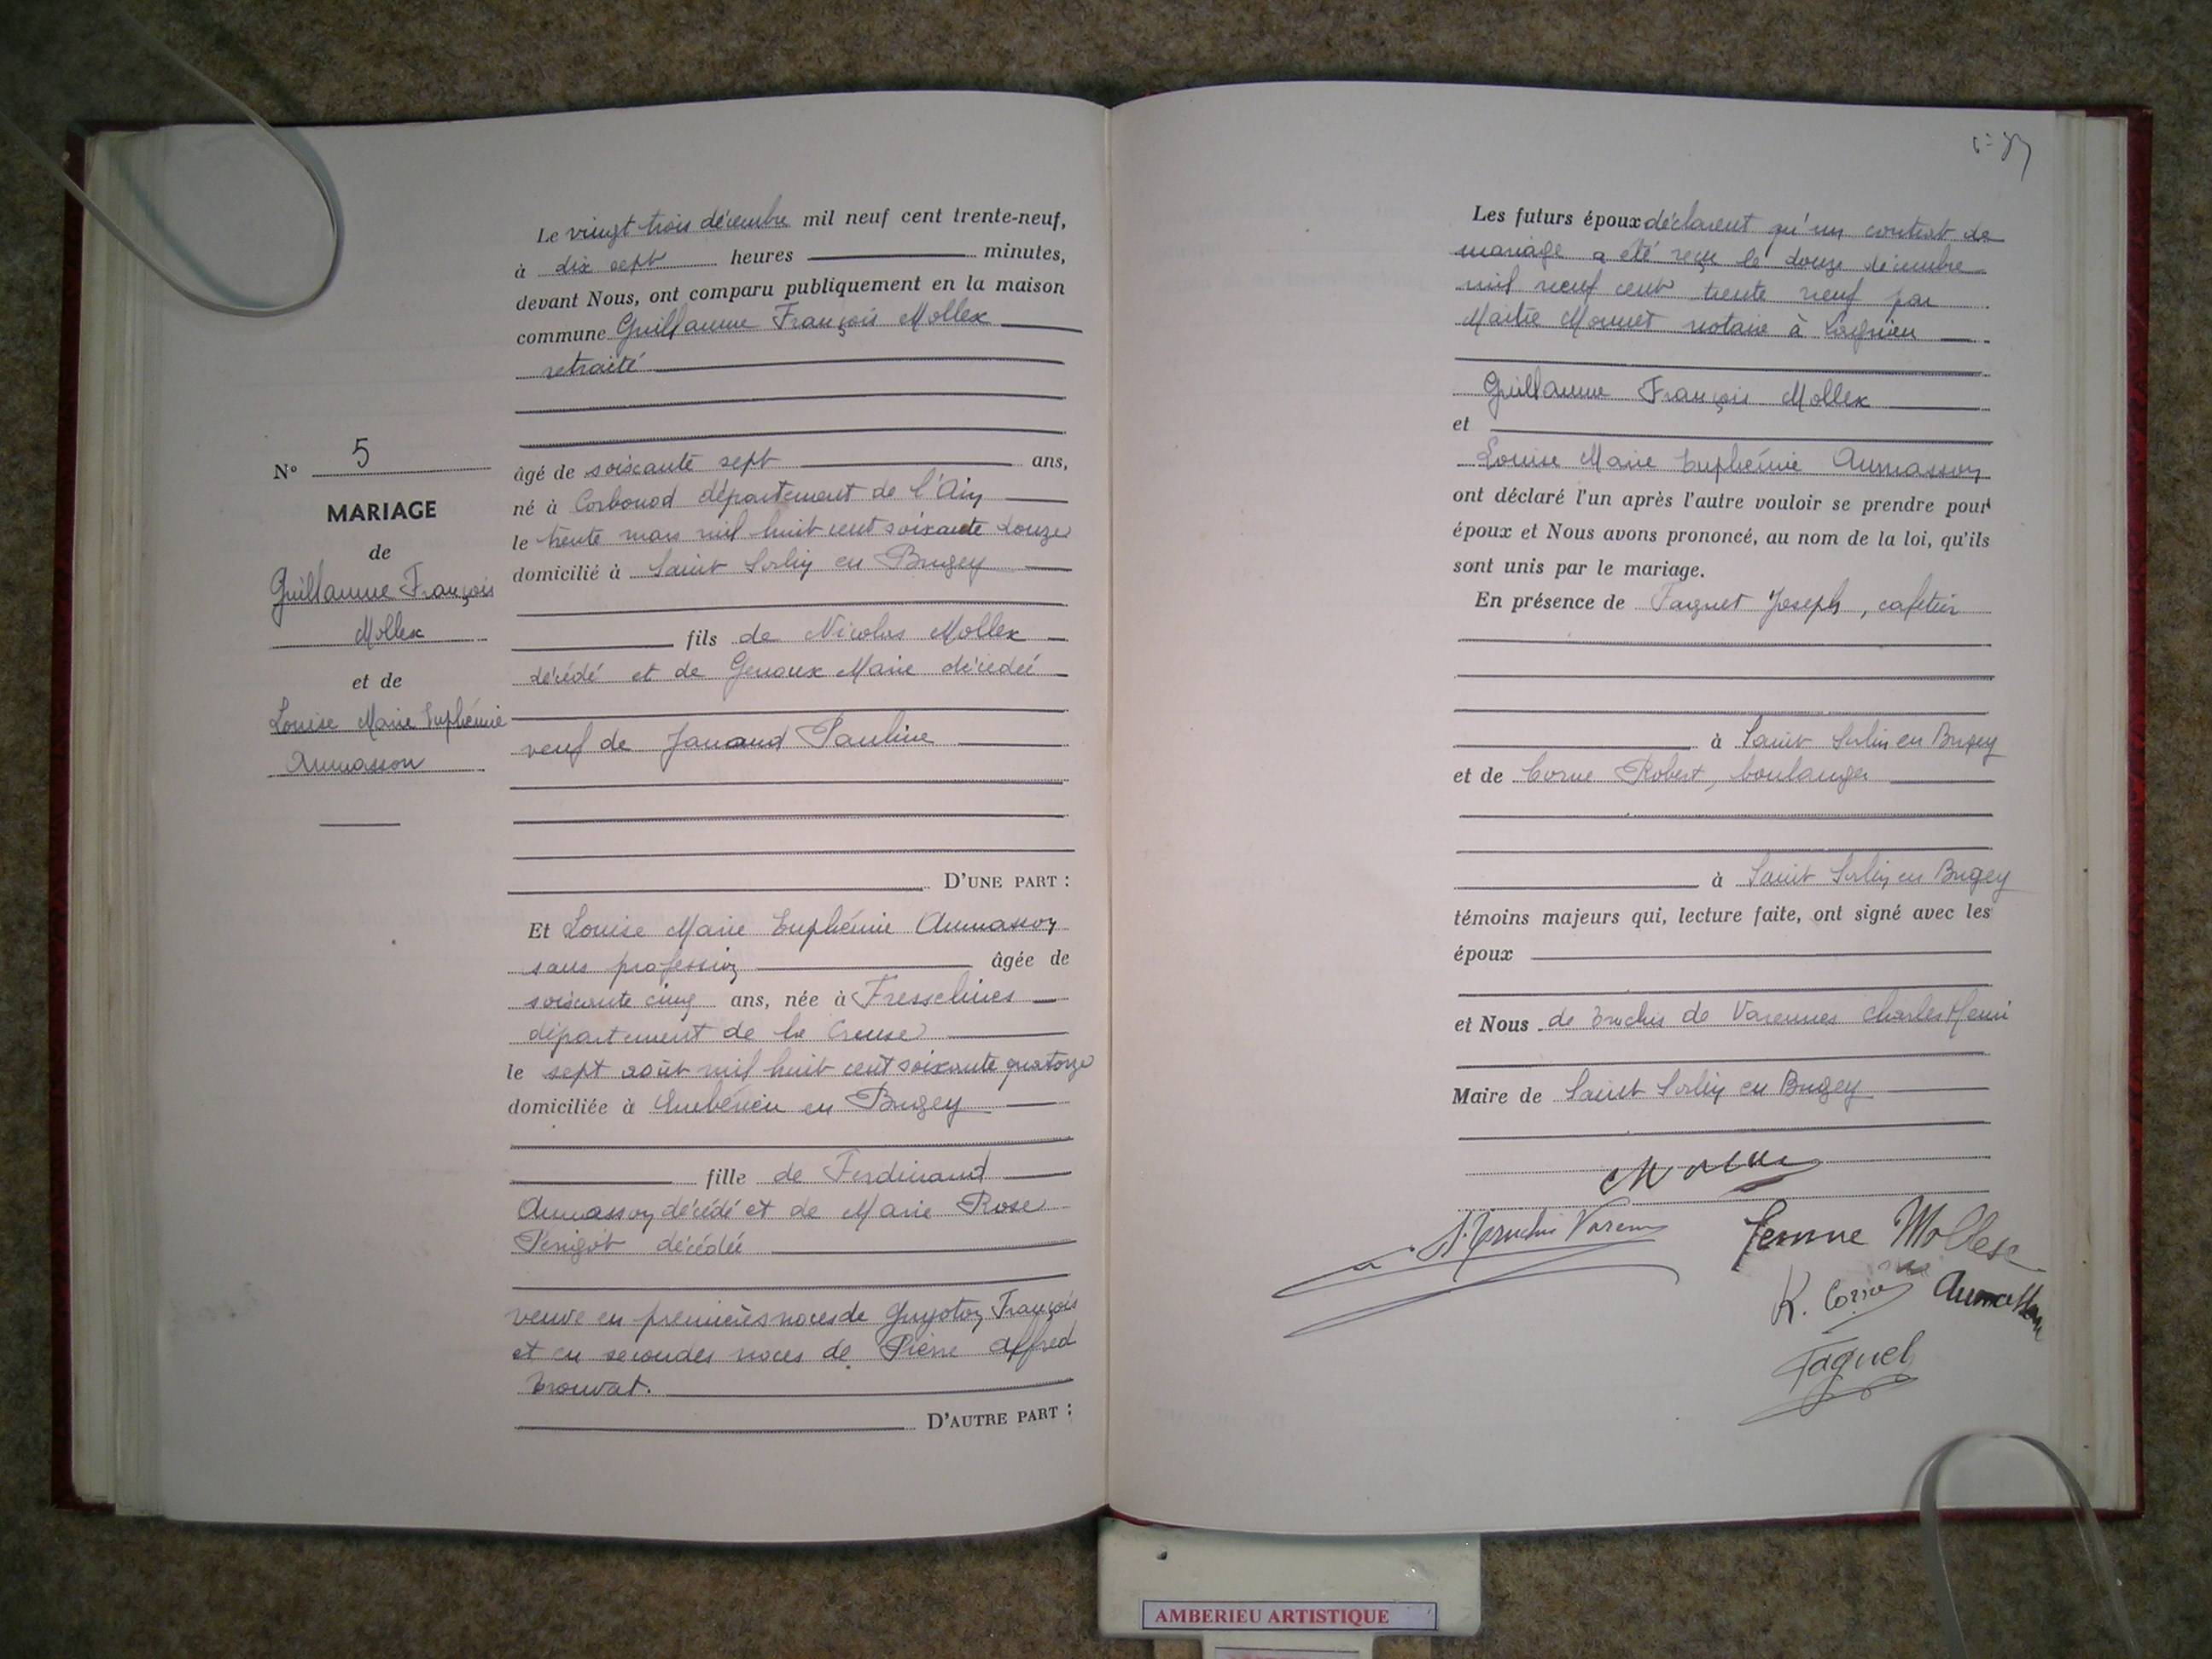 Le vingt trois décembre mil neuf cent trente-neuf,
à dix sept heures minutes,
devant Nous, ont comparu publiquement en la maison
commune Guillaume François Mollex
retraité
âgé de soixante sept ans,
né à Corbonod département de l'Ain
le trente mars mil huit cent soixante douze
domicilié à Saint Sorlin en Bugey
fils de Nicolas Mollex
décédé et de Genoux Marie décédée
veuf de Janand Pauline
D'UNE PART :
Et Louise Marie Euphémie Aumasson
sans profession âgée de
soixante cinq ans, née à Fresselines
département de la Creuse
le sept août mil huit cent soixante quatorze
domiciliée à Ambérieu en Bugey
fille de Ferdinand
Aumasson décédé et de Marie Rose
Périgot décédée
veuve en premières noces de Guyoton François
et en secondes noces de Pierre Alfred
Trouvat.
D'AUTRE PART :
N° 5
MARIAGE
de
Guillaume François
Mollex
et de
Louise Marie Euphémie
Aumasson
Les futurs époux déclarent qu'un contrat de
mariage a été reçu le douze décembre
mil neuf cent trente neuf par
Maître Monnet notaire à Lagnieu
Guillaume François Mollex
et
Louise Marie Euphémie Aumasson
ont déclaré l'un après l'autre vouloir se prendre pour
époux et Nous avons prononcé, au nom de la loi, qu'ils
sont unis par le mariage.
En présence de Faguet Joseph, cafetier
à Saint Sorlin en Bugey
et de Corne Robert, boulanger
à Saint Sorlin en Bugey
témoins majeurs qui, lecture faite, ont signé avec les
époux
et Nous de Truchis de Varennes Charles Henri
Maire de Saint Sorlin en Bugey
femme Mollex
Aumasson
Faguet
AMBERIEU ARTISTIQUE